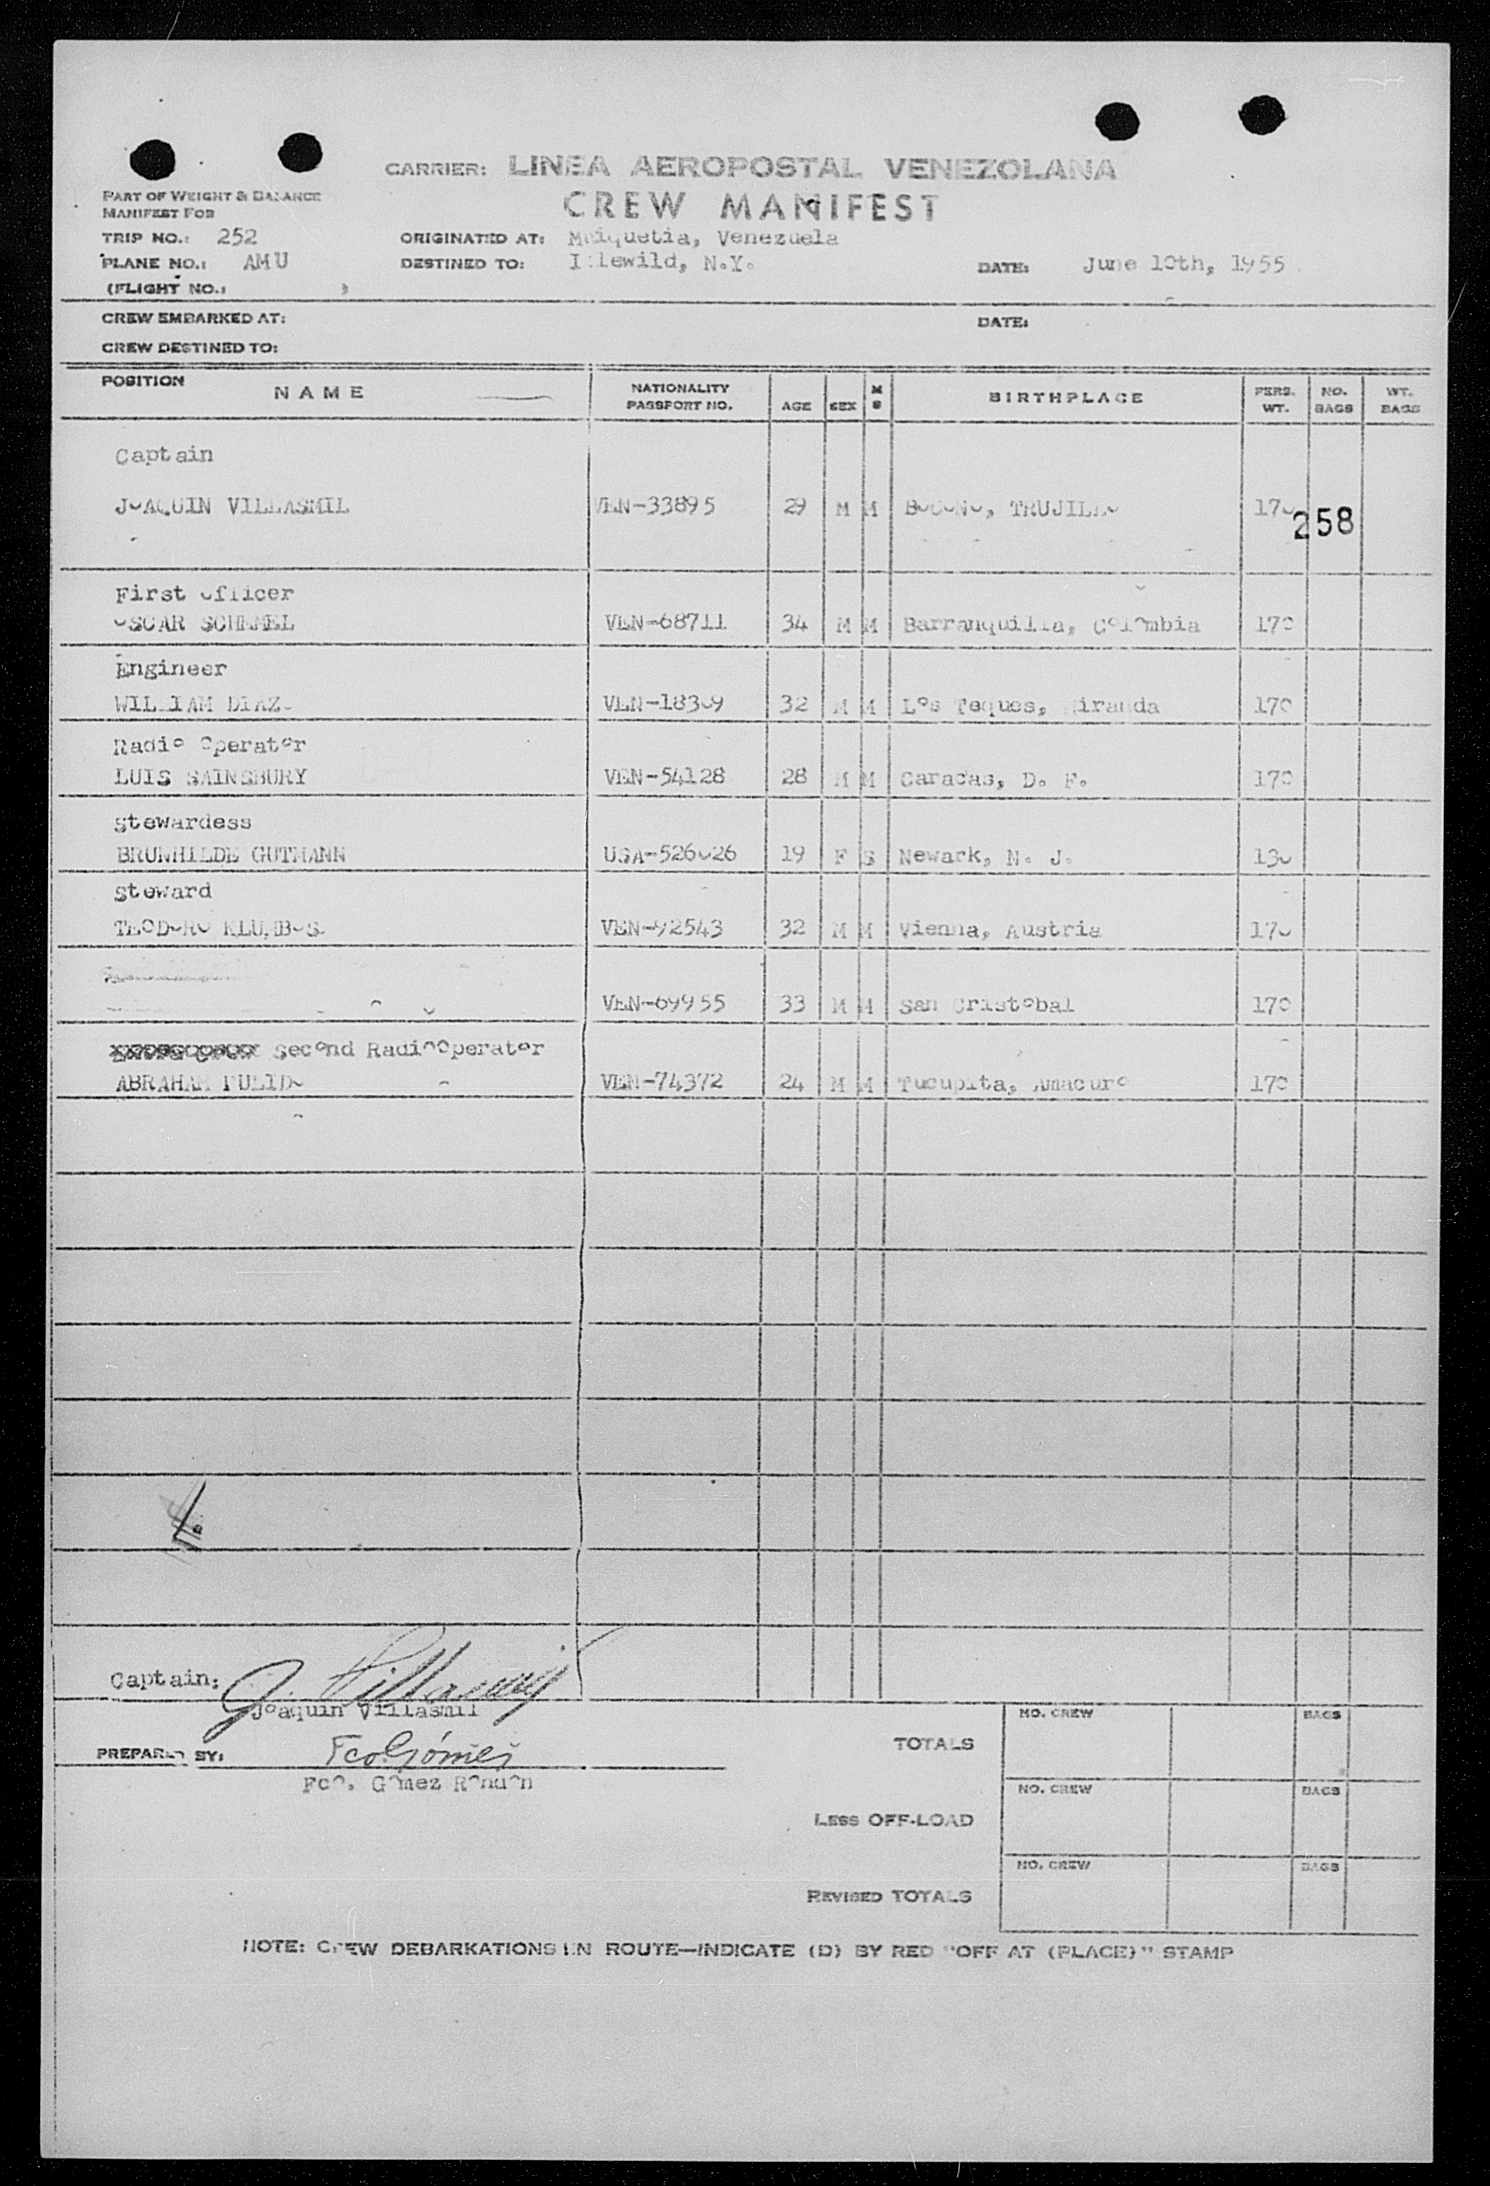 CARRIER: LINEA AEROPOSTAL VENEZOLANA
CREW MANIFEST
PART OF WEIGHT & BALANCE
MANIFEST FOR
TRIP NO.: 252 ORIGINATED AT: Maiquetia, Venezuela
PLANE NO.: AMU DESTINED TO: Idlewild, N.Y. DATE: June 10th, 1955
(FLIGHT NO.: )
CREW EMBARKED AT: DATE:
CREW DESTINED TO:
POSITION NAME NATIONALITY PASSPORT NO. AGE SEX M S BIRTHPLACE PERS. WT. NO. BAGS WT. BAGS
Captain
JOAQUIN VILLASMIL VEN-33895 29 M M BOCONO, TRUJILLO 170
258
First Officer
OSCAR SCHEMEL VEN-68711 34 M M Barranquilla, Colombia 170
Engineer
WILLIAM DIAZ. VEN-18309 32 M M Los Teques, Miranda 170
Radio Operator
LUIS SAINSBURY VEN-54128 28 M M Caracas, D. F. 170
Stewardess
BRUNHILDE GUTMANN USA-526026 19 F S Newark, N. J. 130
Steward
TEODORO KLUMBOS. VEN-92543 32 M M Vienna, Austria 170
VEN-69955 33 M M San Cristobal 170
Second RadioOperator
ABRAHAM PULIDO VEN-74372 24 M M Tucupita, Amacuro 170
Captain: J. Villasmil
Joaquin Villasmil
PREPARED BY: Fco Gómez
Fco. Gomez Rondon
TOTALS NO. CREW BAGS
LESS OFF-LOAD NO. CREW BAGS
REVISED TOTALS NO. CREW BAGS
NOTE: CREW DEBARKATIONS EN ROUTE—INDICATE (D) BY RED "OFF AT (PLACE)" STAMP